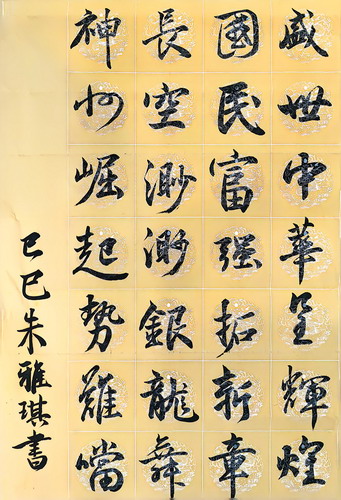 盛世中華呈輝煌
國民富强拓新章
長空渺渺銀龍舞
神州崛起勢難當
己巳朱雅琪書